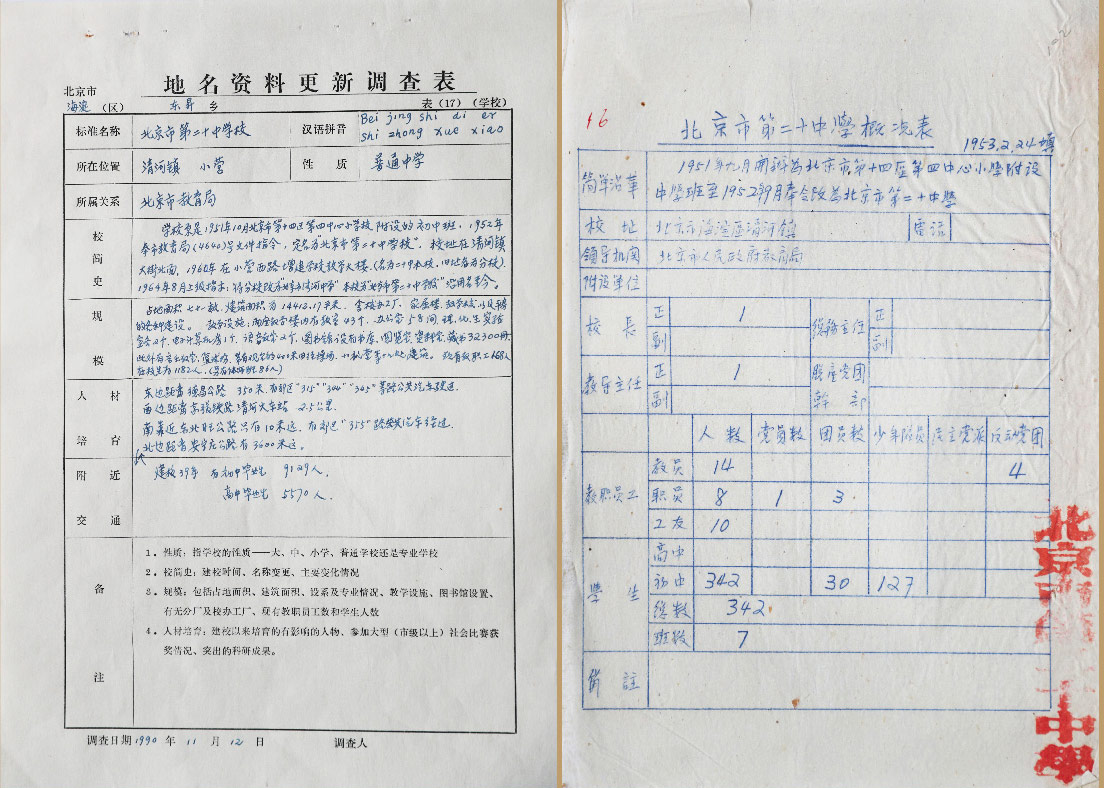 地名资料更新调查表
北京市
海淀（区） 东升乡 表（17）（学校）
标准名称 北京市第二十中学校 汉语拼音 Bei jing shi di er shi zhong xue xiao
所在位置 清河镇 小营 性质 普通中学
所属关系 北京市教育局
校简史
学校原是1951年10月北京市第十四区第四中心小学校附设的初中班，1952年
奉市教育局(4640)号文件指令，定名为"北京市第二十中学校"。校址在清河镇
大街北面，1960年在小营西路增建学校教学大楼。(名为二十中本校，旧址名为分校)。
1964年8月上级指示：将分校改为"北京市清河中学"本校为"北京市第二十中学校"
规模
占地面积七十一亩，建筑面积为14413.17平米。含校办工厂、家属楼、教学大楼
教室43个，办公室
图书馆设有书库、阅览室、资料室、藏书32300册
400米
现有教职工168人
在校生为1182人，
人材培育
东边距离德昌公路350米，有郊区"315""344""345"等路公共汽车经过。
西边距离京张铁路清河火车站2.5公里。
南靠近
北边距离安宁庄公路有3600米远。
附近交通
建校39年 有初中毕业生 9129人，
高中毕业生 5570人。
备注
1．性质：指学校的性质——大、中、小学、普通学校还是专业学校
2．校简史：建校时间、名称变更、主要变化情况
3．规模：包括占地面积、建筑面积、设系及专业情况、教学设施、图书馆设置、
有无分厂及校办工厂、现有教职员工数和学生人数
4．人材培育：建校以来培育的有影响的人物、参加大型（市级以上）社会比赛获
奖情况、突出的科研成果。
调查日期1990年11月12日 调查人
16
北京市第二十中學概况表 1953.2.24填
简单沿革
1951年九月開辦為北京市第十四區第四中心小學附設
中學班至1952年9月奉令改為北京市第二十中學
校址 北京市海淀區清河镇 電话
領导机関 北京市人民政府教育局
附設单位
校長 正 1 总务主任 正
副 副
教导主任 正 1 脱産党团幹部
副
人数 党员数 团员数 少年隊员 民主党派 反动党团
教职员工 教员 14 4
职员 8 1 3
工友 10
學生 高中
初中 342 30 127
总数 342
班数 7
備註
北京
二十中學